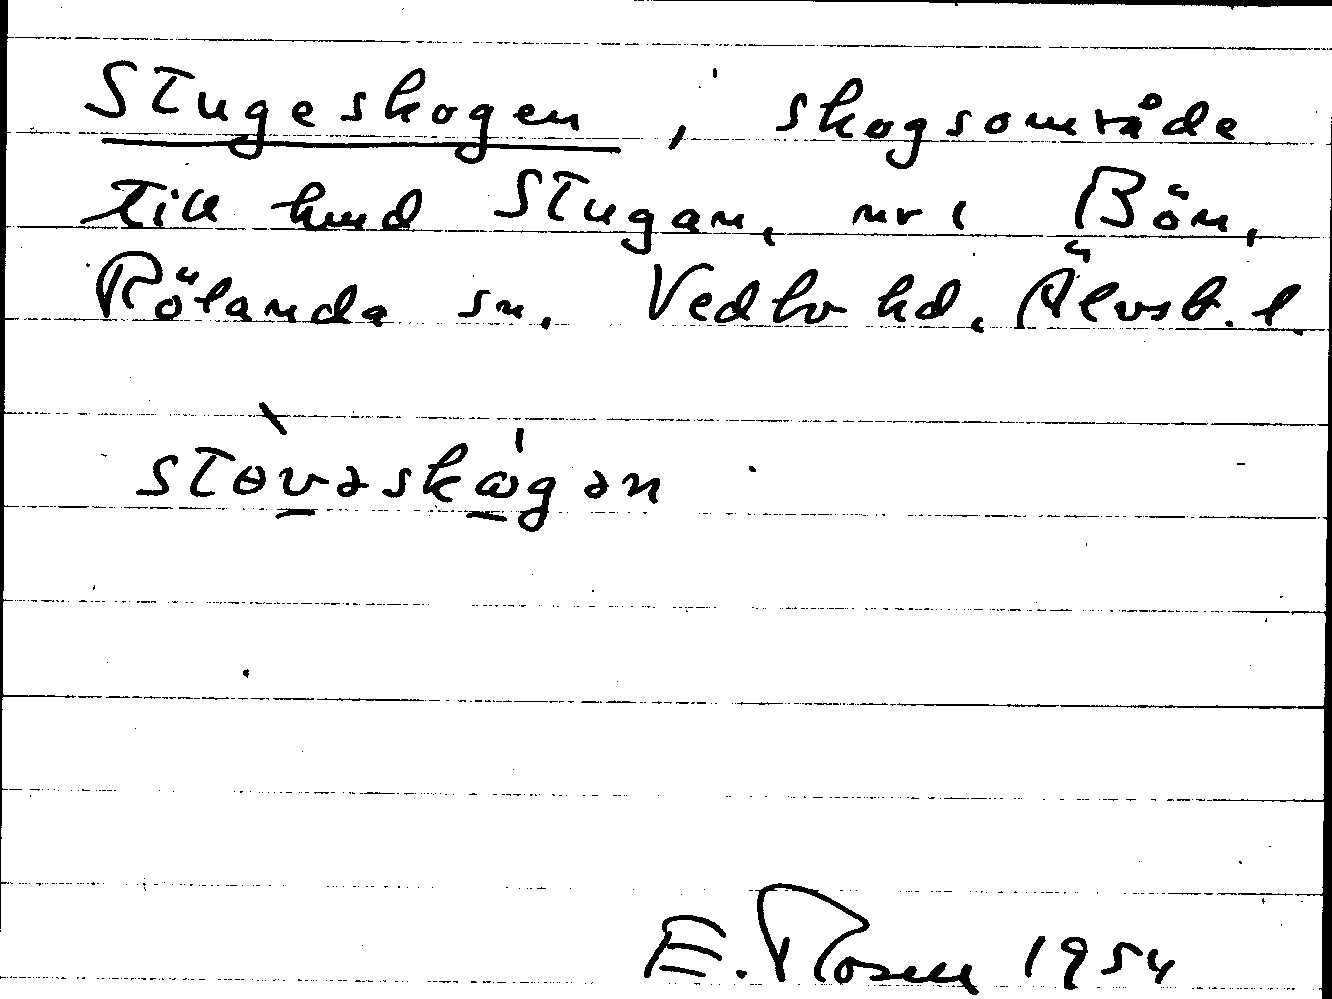 Stugeskogen, skogsområde
till hmd Stugan, nr 1 Bön,
Rölanda sn, Vedbo hd, Älvsb. l.
stɵ̀vəskɷ́gən
E. Rosell 1954